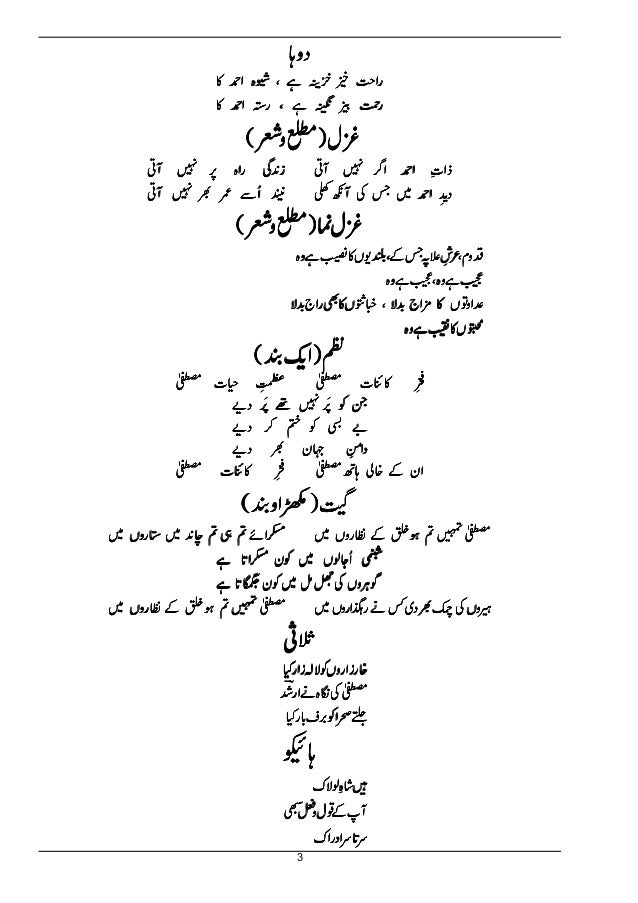 دوہا
راحت خیز خزینہ ہے ، شیوہ احمد کا
رحمت بیز نگینہ ہے ، رستہ احمد کا
غزل (مطلع و شعر)
ذاتِ احمد اگر نہیں آتی زندگی راہ پر نہیں آتی
دیدِ احمد میں جس کی آنکھ کھلی نیند اُسے عمر بھر نہیں آتی
غزل نما (مطلع و شعر)
قدوم، عرشِ علا پہ جس کے، بلندیوں کا نصیب ہے وہ
عجیب ہے وہ، عجیب ہے وہ
عداوتوں کا مزاج بدلا ، خباثتوں کا بھی راج بدلا
محبتوں کا نقیب ہے وہ
نظم (ایک بند)
فخرِ کائنات مصطفیٰ عظمتِ حیات مصطفیٰ
جن کو پَر نہیں تھے پَر دیے
بے بسی کو ختم کر دیے
دامنِ جہان بھر دیے
ان کے خالی ہاتھ مصطفیٰ فخرِ کائنات مصطفیٰ
گیت (مکھڑا و بند)
مصطفیٰ تمہیں تم ہو خلق کے نظاروں میں مسکرائے تم ہی تم چاند میں ستاروں میں
شبنمی اُجالوں میں کون مسکراتا ہے
گوہروں کی جھل مل میں کون جگمگاتا ہے
ہیروں کی چمک بھر دی کس نے رہگذاروں میں مصطفیٰ تمہیں تم ہو خلق کے نظاروں میں
ثلاثی
خارزاروں کو لالہ زار کیا
مصطفیٰ کی نگاہ نے ارشدؔ
جلتے صحرا کو برف بار کیا
ہائیکو
ہیں شاہِ لولاک
آپ کے قول و فعل سبھی
سرتاسر ادراک
3